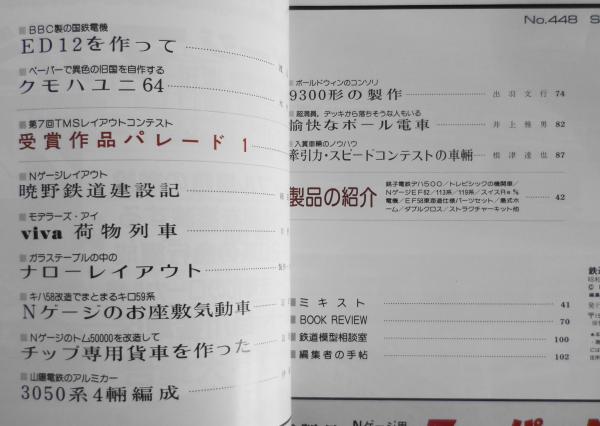 ■BBC製の国鉄電機
ED12を作って
■ペーパーで異色の旧国を自作する
クモハユニ64
■第7回TMSレイアウトコンテスト
受賞作品パレード 1
■Nゲージレイアウト
暁野鉄道建設記
■モデラーズ・アイ
viva 荷物列車
■ガラステーブルの中の
ナローレイアウト
■キハ58改造でまとまるキロ59系
Nゲージのお座敷気動車
■Nゲージのトム50000を改造して
チップ専用貨車を作った
■山陽電鉄のアルミカー
3050系4輛編成
No.448
■ボールドウィンのコンソリ
9300形の製作 出羽文行 74
■超満員,デッキから落ちそうな人もいる
愉快なポール電車 井上雅男 82
■入賞車輛のノウハウ
牽引力・スピードコンテストの車輛 根津達也 87
製品の紹介
銚子電鉄デハ500/トレビシックの機関車/
NゲージEF62/113系/119系/スイスRe⅘
電機/EF58東海道仕様パーツセット/島式ホ
ーム/ダブルクロス/ストラクチャーキット他 42
■ミキスト 41
■BOOK REVIEW 70
■鉄道模型相談室 100
■編集者の手帖 102